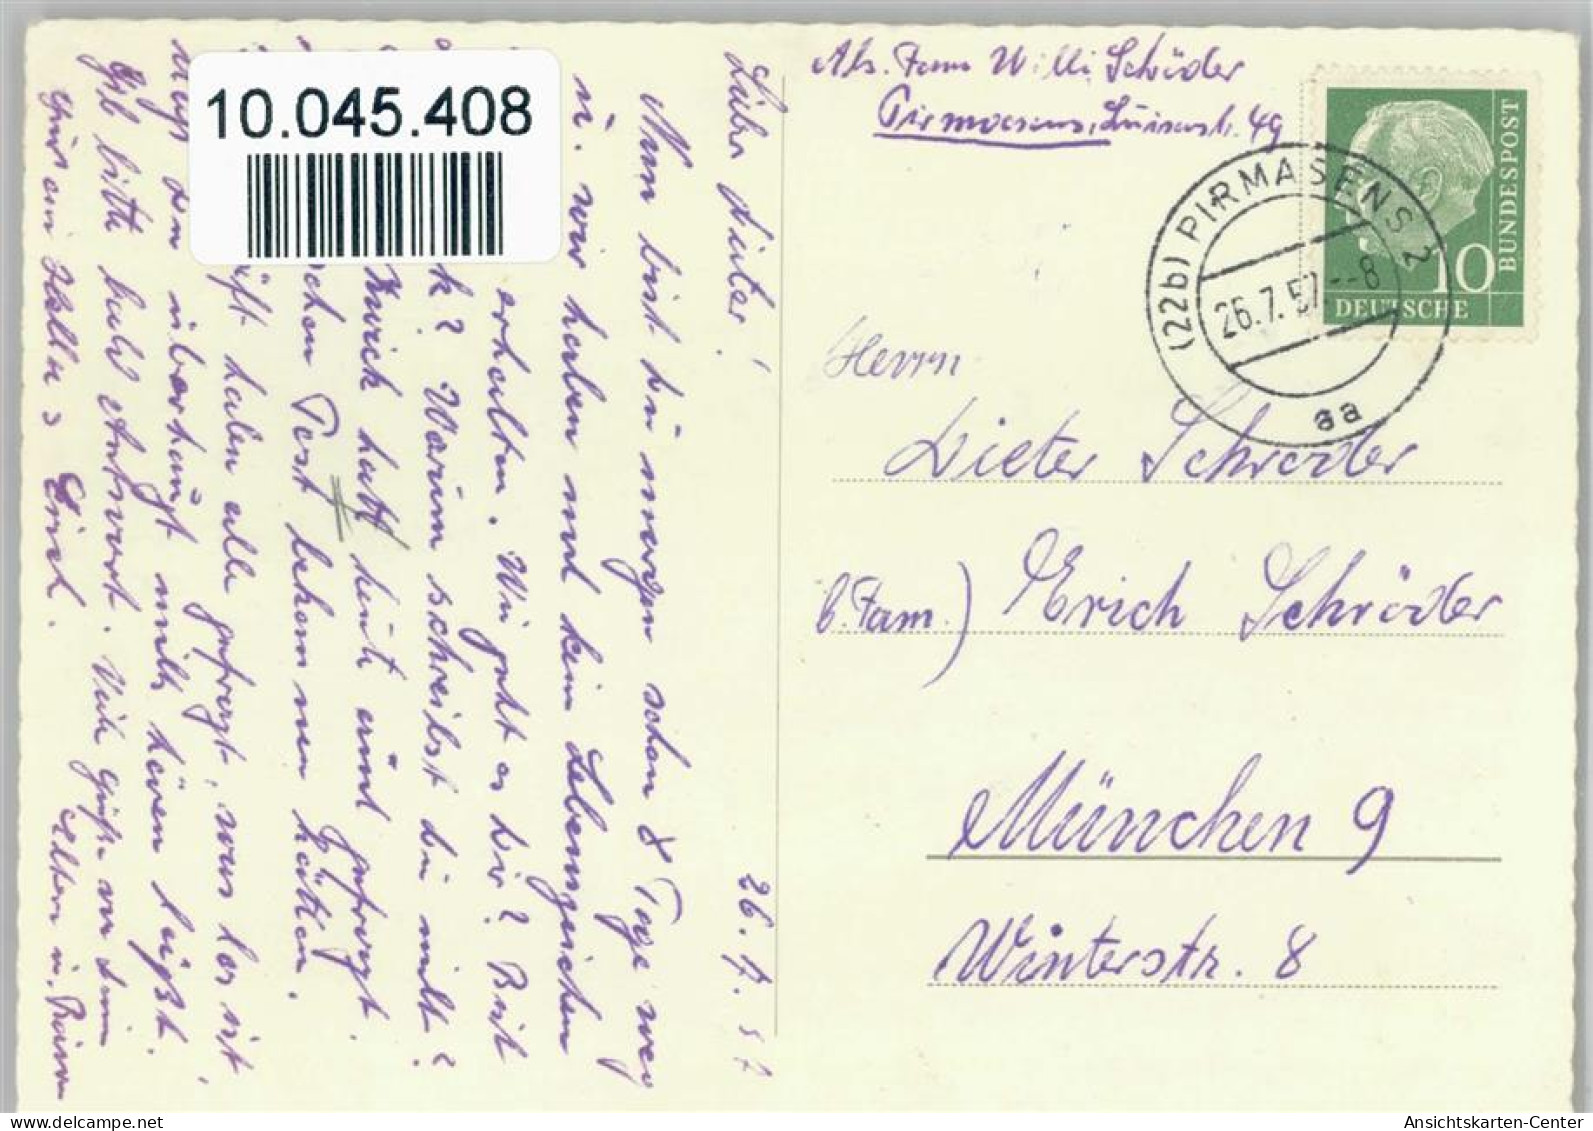 10.045.408
Abs. Fam Willi Schröder
Pirmasens, Luisenstr. 49
(22b) PIRMASENS 2
26.7.57.--8
aa
10
DEUTSCHE
BUNDESPOST
Herrn
Dieter Schröder
b. Fam.) Erich Schröder
München 9
Winterstr. 8
26.7.57
Lieber Dieter!
Nun bist du morgen schon 8 Tage weg
u. wir haben noch kein Lebenszeichen
erhalten. Wie geht es dir? Bist
k? Warum schreibst du nicht?
Zwick hatt heute und gefragt.
chen Post bekommen hätten.
haben alle gefragt, was los ist
überhaupt nichts hören läßt.
Gib bitte bald Antwort. Viele Grüße von dein
Eltern u.
Erich.
Ansichtskarten-Center